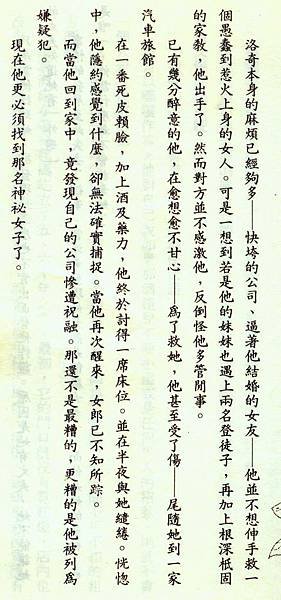 洛奇本身的麻煩已經夠多——快垮的公司、逼著他結婚的女友——他並不想伸手救一
個愚蠢到惹火上身的女人。可是一想到若是他的妹妹也遇上兩名登徒子，再加上根深柢固
的家教，他出手了。然而對方並不感激他，反倒怪他多管閒事。
已有幾分醉意的他，在愈想愈不甘心——為了救她，他甚至受了傷——尾隨她到一家
汽車旅館。
在一番死皮賴臉，加上酒及藥力，他終於討得一席床位。並在半夜與她繾綣。恍惚
中，他隱約感覺到什麼，卻無法確實捕捉。當他再次醒來，女郎已不知所踪。
而當他回到家中，竟發現自己的公司慘遭祝融。那還不是最糟的，更糟的是他被列為
嫌疑犯。
現在他更必須找到那名神祕女子了。